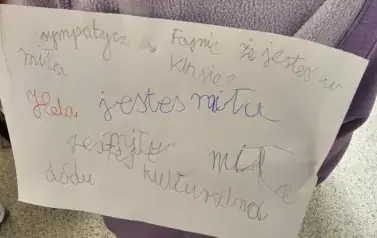 sympatyczna Fajnie że jesteś w
miła klasie
Hela jestes miła
jesteś miła miła
kulturalna